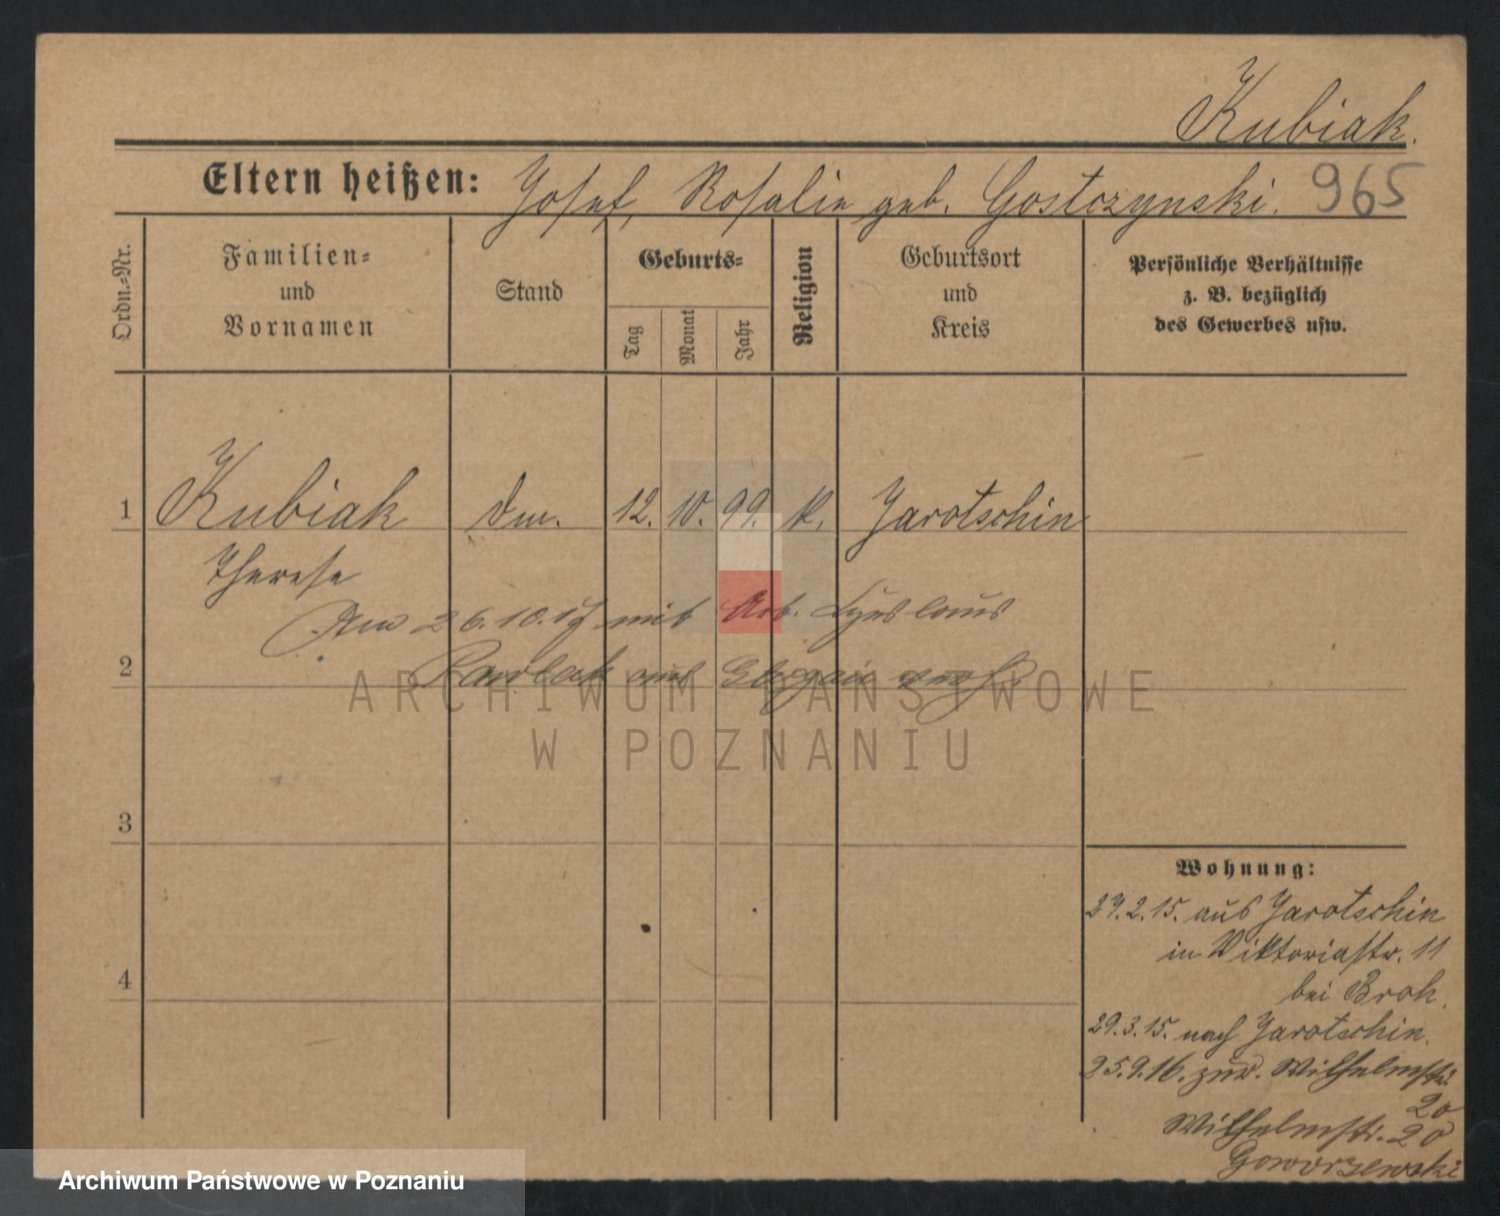 Kubiak.
Eltern heißen: Josef, Rosalie geb. Gostczynski. 965
Ordn.-Nr.
Familien-
und
Vornamen
Stand
Geburts-
Tag
Monat
Jahr
Religion
Geburtsort
und
Kreis
Persönliche Verhältnisse
z. B. bezüglich
des Gewerbes usw.
1 Kubiak 12. 10. 99. k. Jarotschin
Therese
Am 26.10.19 mit Arb.
2 aus
3
4
ARCHIWUM PAŃSTWOWE
W POZNANIU
Wohnung:
27.2.15. aus Jarotschin
in Viktoriastr. 11
bei Brok.
29.3.15. nach Jarotschin.
25.9.16. zur. Wilhelmstr.
20
Wilhelmstr. 20
Goworzewski
Archiwum Państwowe w Poznaniu